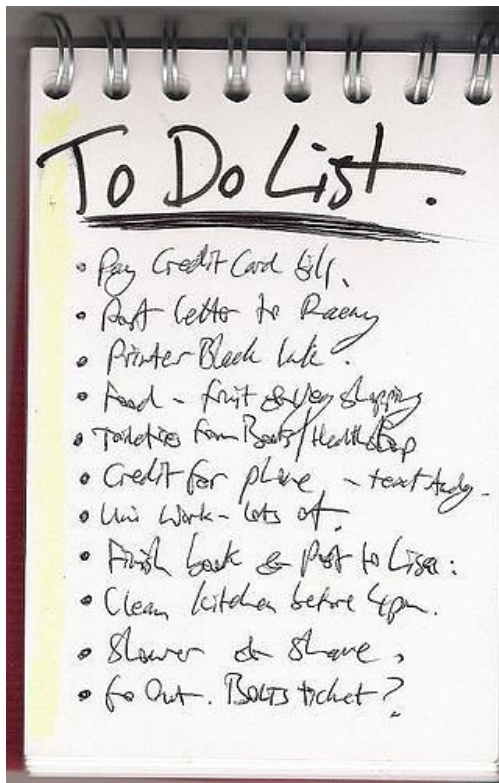 To Do List.
• Pay Credit Card bill.
• Post letter to
• Printer Black Ink.
• Food - fruit & veg shopping
• Toiletries from Boots/Health Shop
• Credit for phone - text Andy.
• Uni work - lots of.
• Finish book & post to Lisa.
• Clean kitchen before 4pm.
• Shower & Shave.
• Go Out. Bolts ticket?